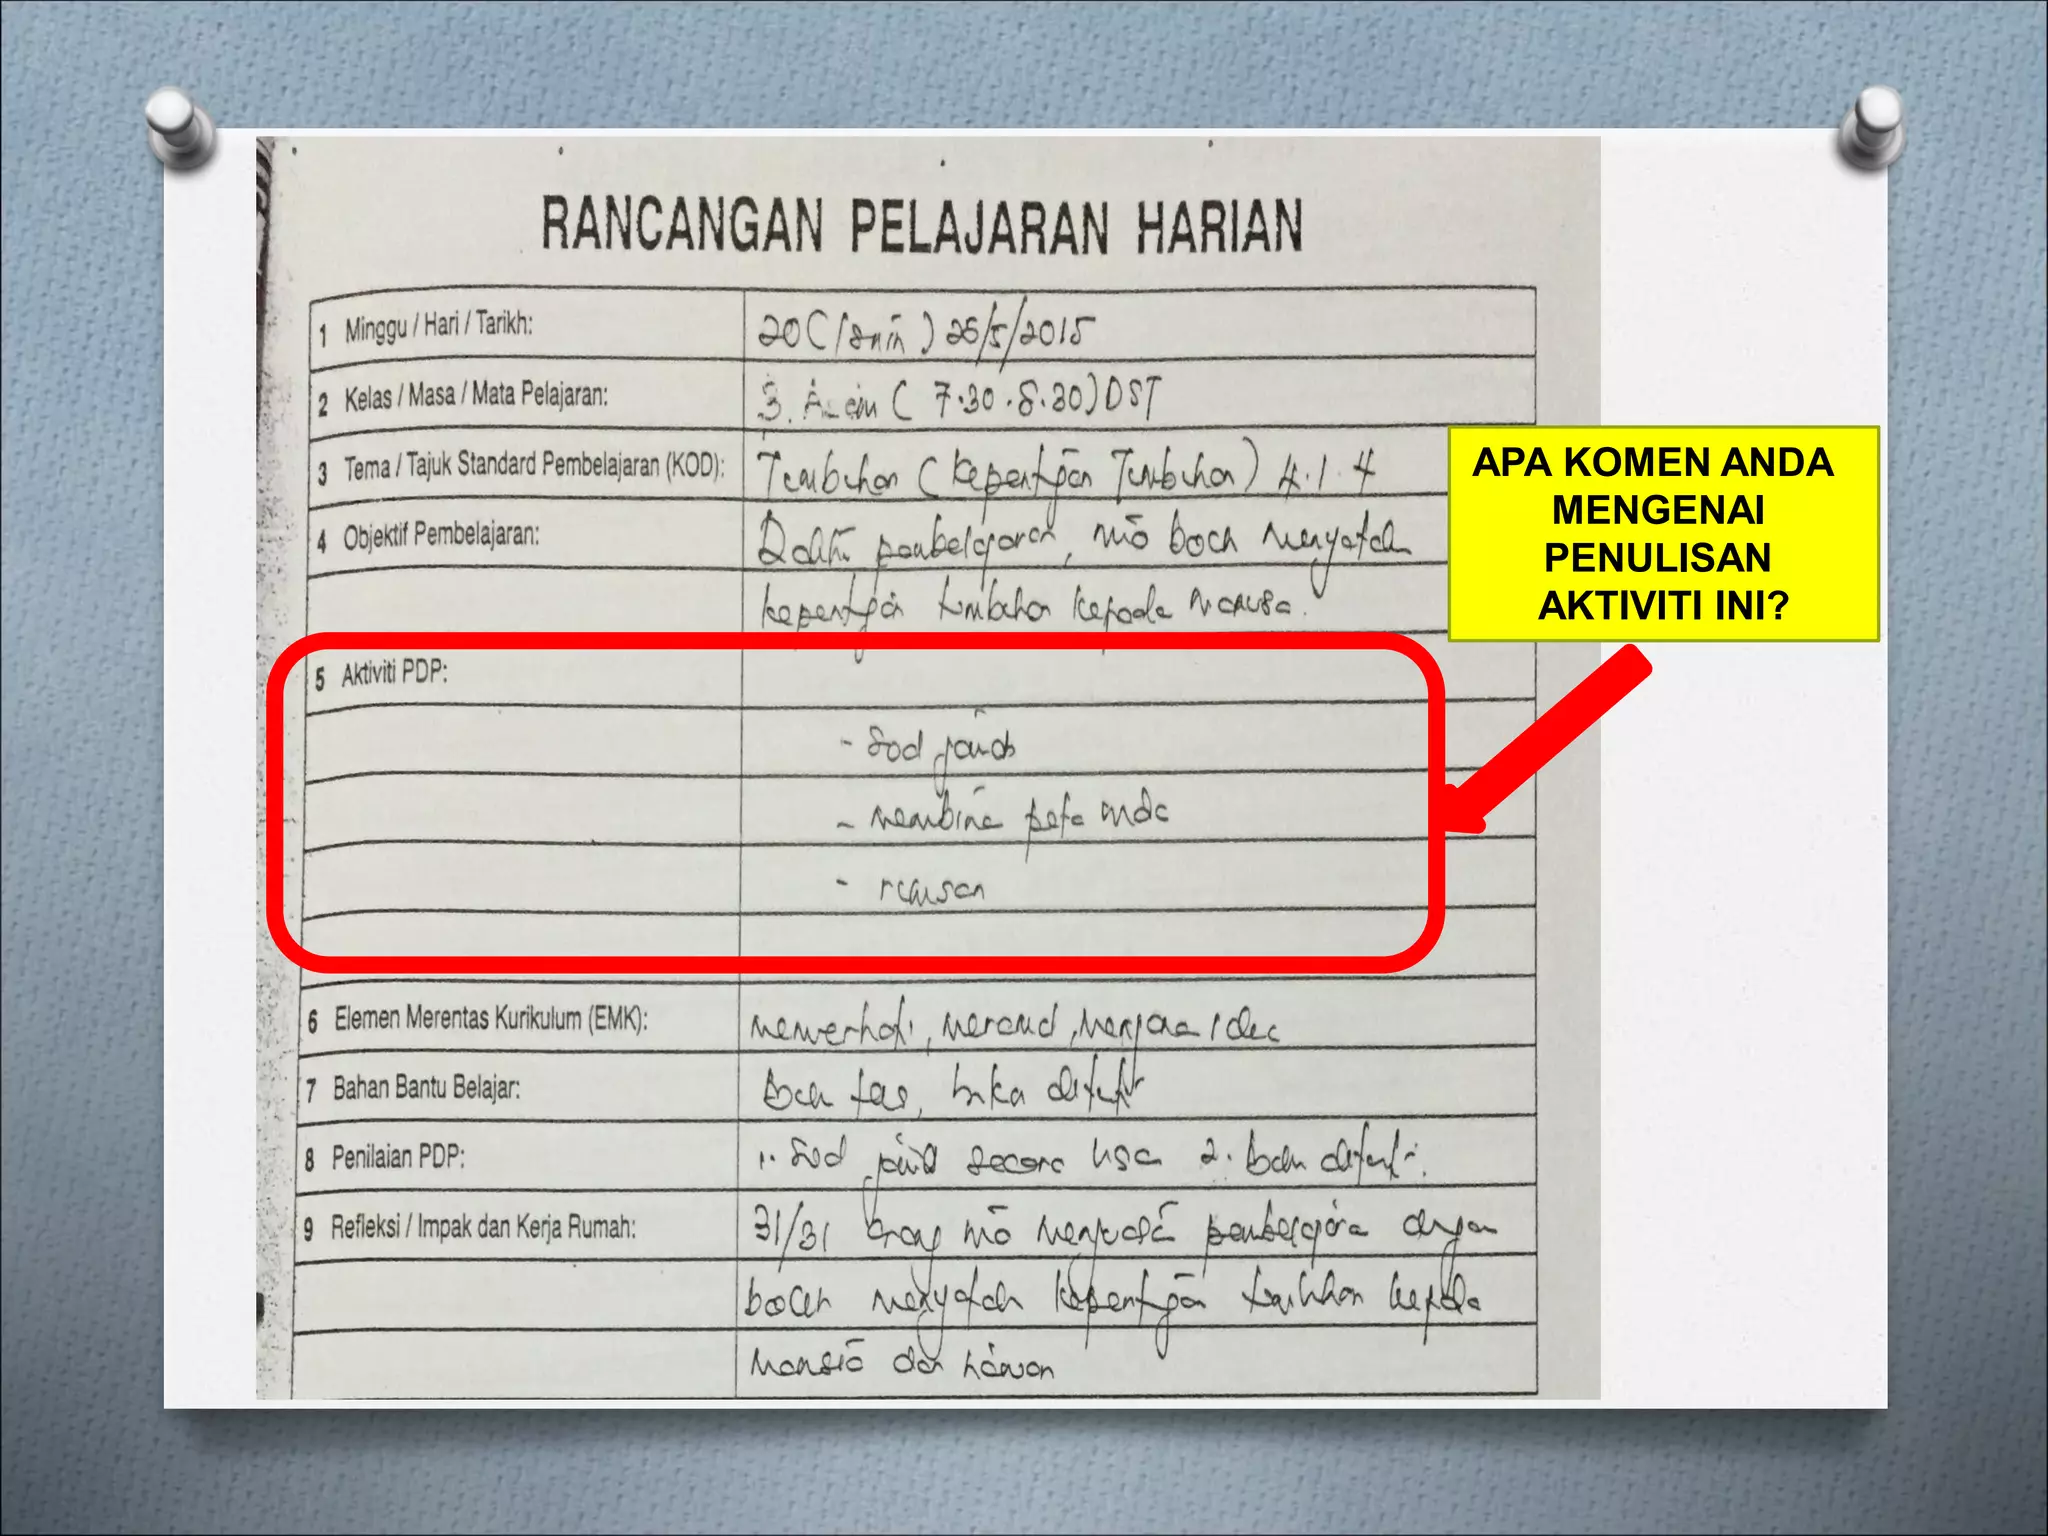 RANCANGAN PELAJARAN HARIAN
1 Minggu / Hari / Tarikh:
20 (Isnin) 25/5/2015
2 Kelas / Masa / Mata Pelajaran:
3. (7.30-8.30) DST
3 Tema / Tajuk Standard Pembelajaran (KOD):
Tumbuhan (Kepentgan Tumbuhan) 4.1.4
4 Objektif Pembelajaran:
pembelajaran, boleh menyatakan
kepentgan tumbuhan kepada manusia.
APA KOMEN ANDA
MENGENAI
PENULISAN
AKTIVITI INI?
5 Aktiviti PDP:
- Soal jawab
- membina peta minda
- rumusan
6 Elemen Merentas Kurikulum (EMK):
memerhati, menjana idea
7 Bahan Bantu Belajar:
8 Penilaian PDP:
1. Soal jawab secara lisan 2.
9 Refleksi / Impak dan Kerja Rumah:
31/31 orang pembelajaran dengan
boleh menyatakan kepentgan tumbuhan kepada
manusia dan haiwan